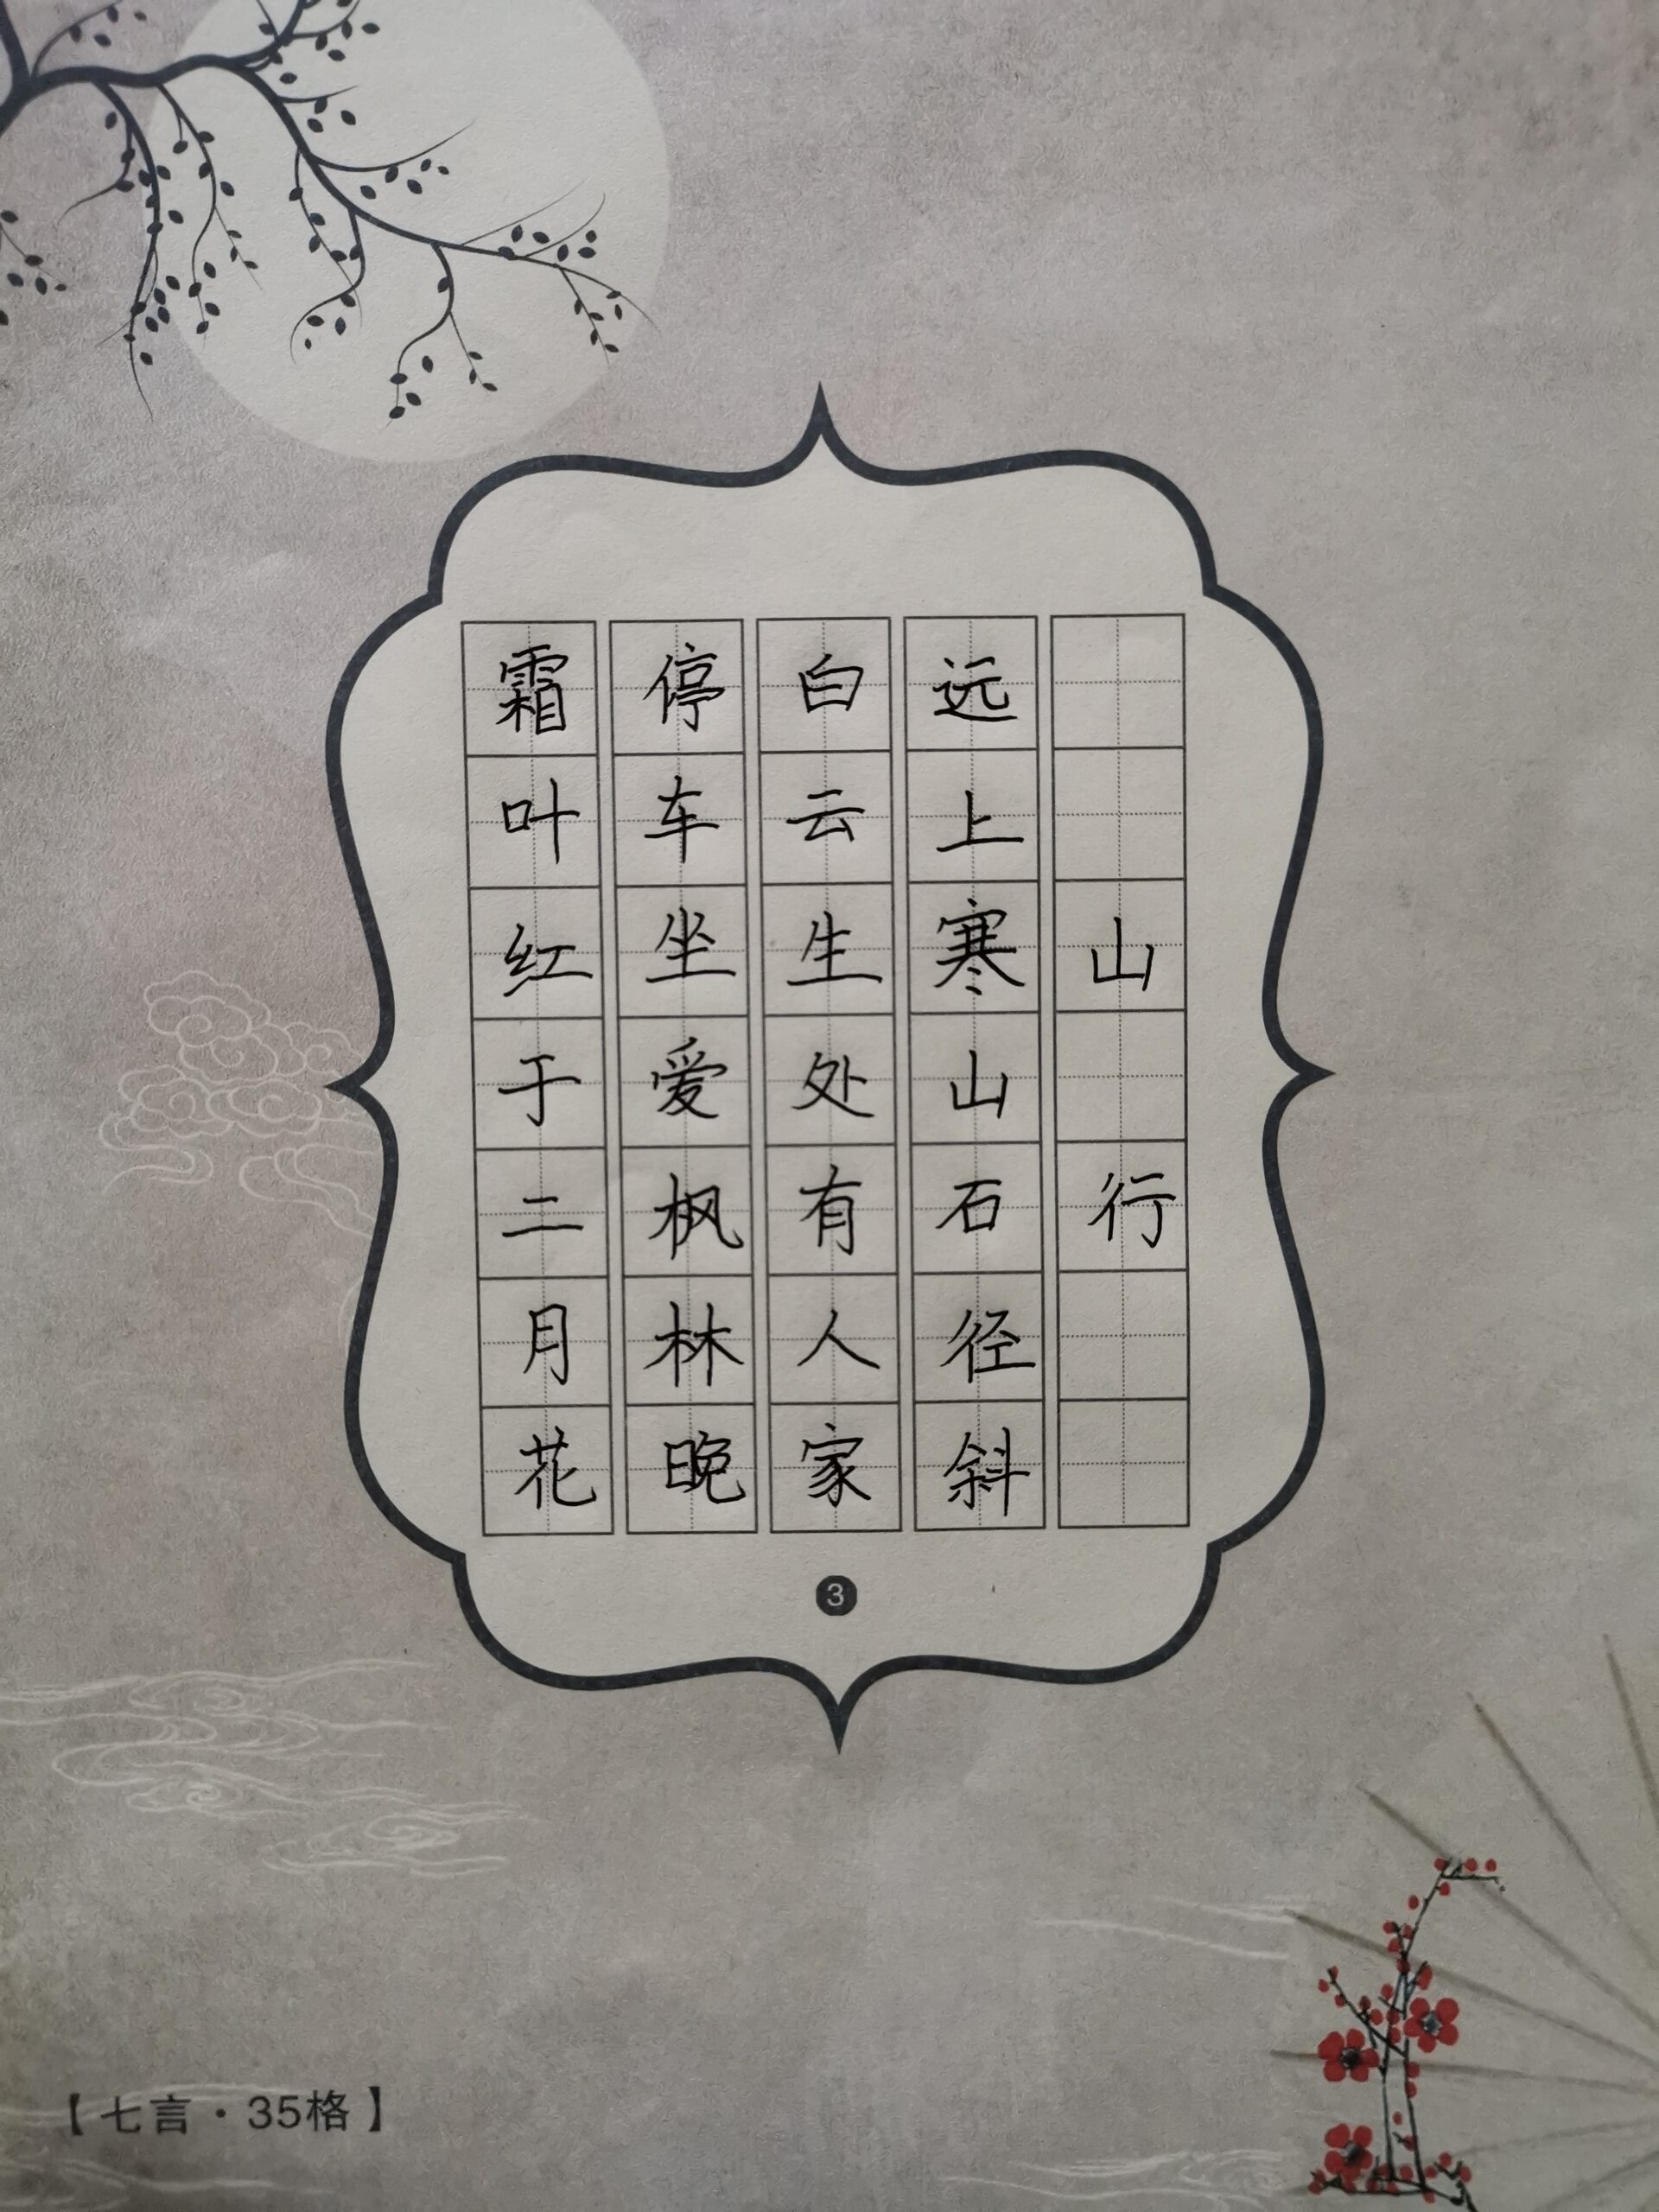 山行
远上寒山石径斜
白云生处有人家
停车坐爱枫林晚
霜叶红于二月花
3
【七言·35格】